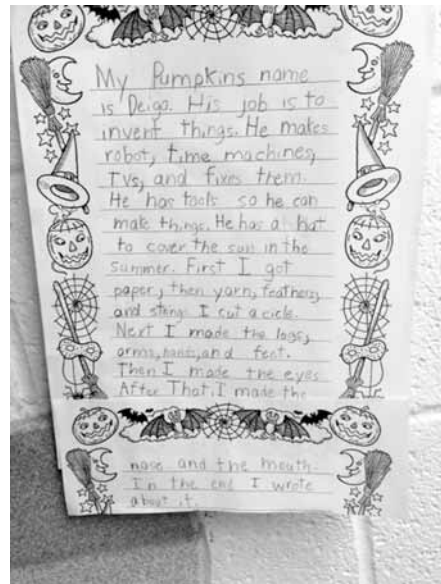 My Pumpkins name
is Deigo. His job is to
invent things. He makes
robot, time machines,
TVs, and fixes them.
He has tools so he can
make things. He has a hat
to cover the sun in the
summer. First I got
paper, then yarn, feathers,
and string. I cut a cicle.
Next I made the legs,
arms, hands, and feet.
Then I made the eyes
After That, I made the
nose and the mouth.
In the end I wrote
about it.